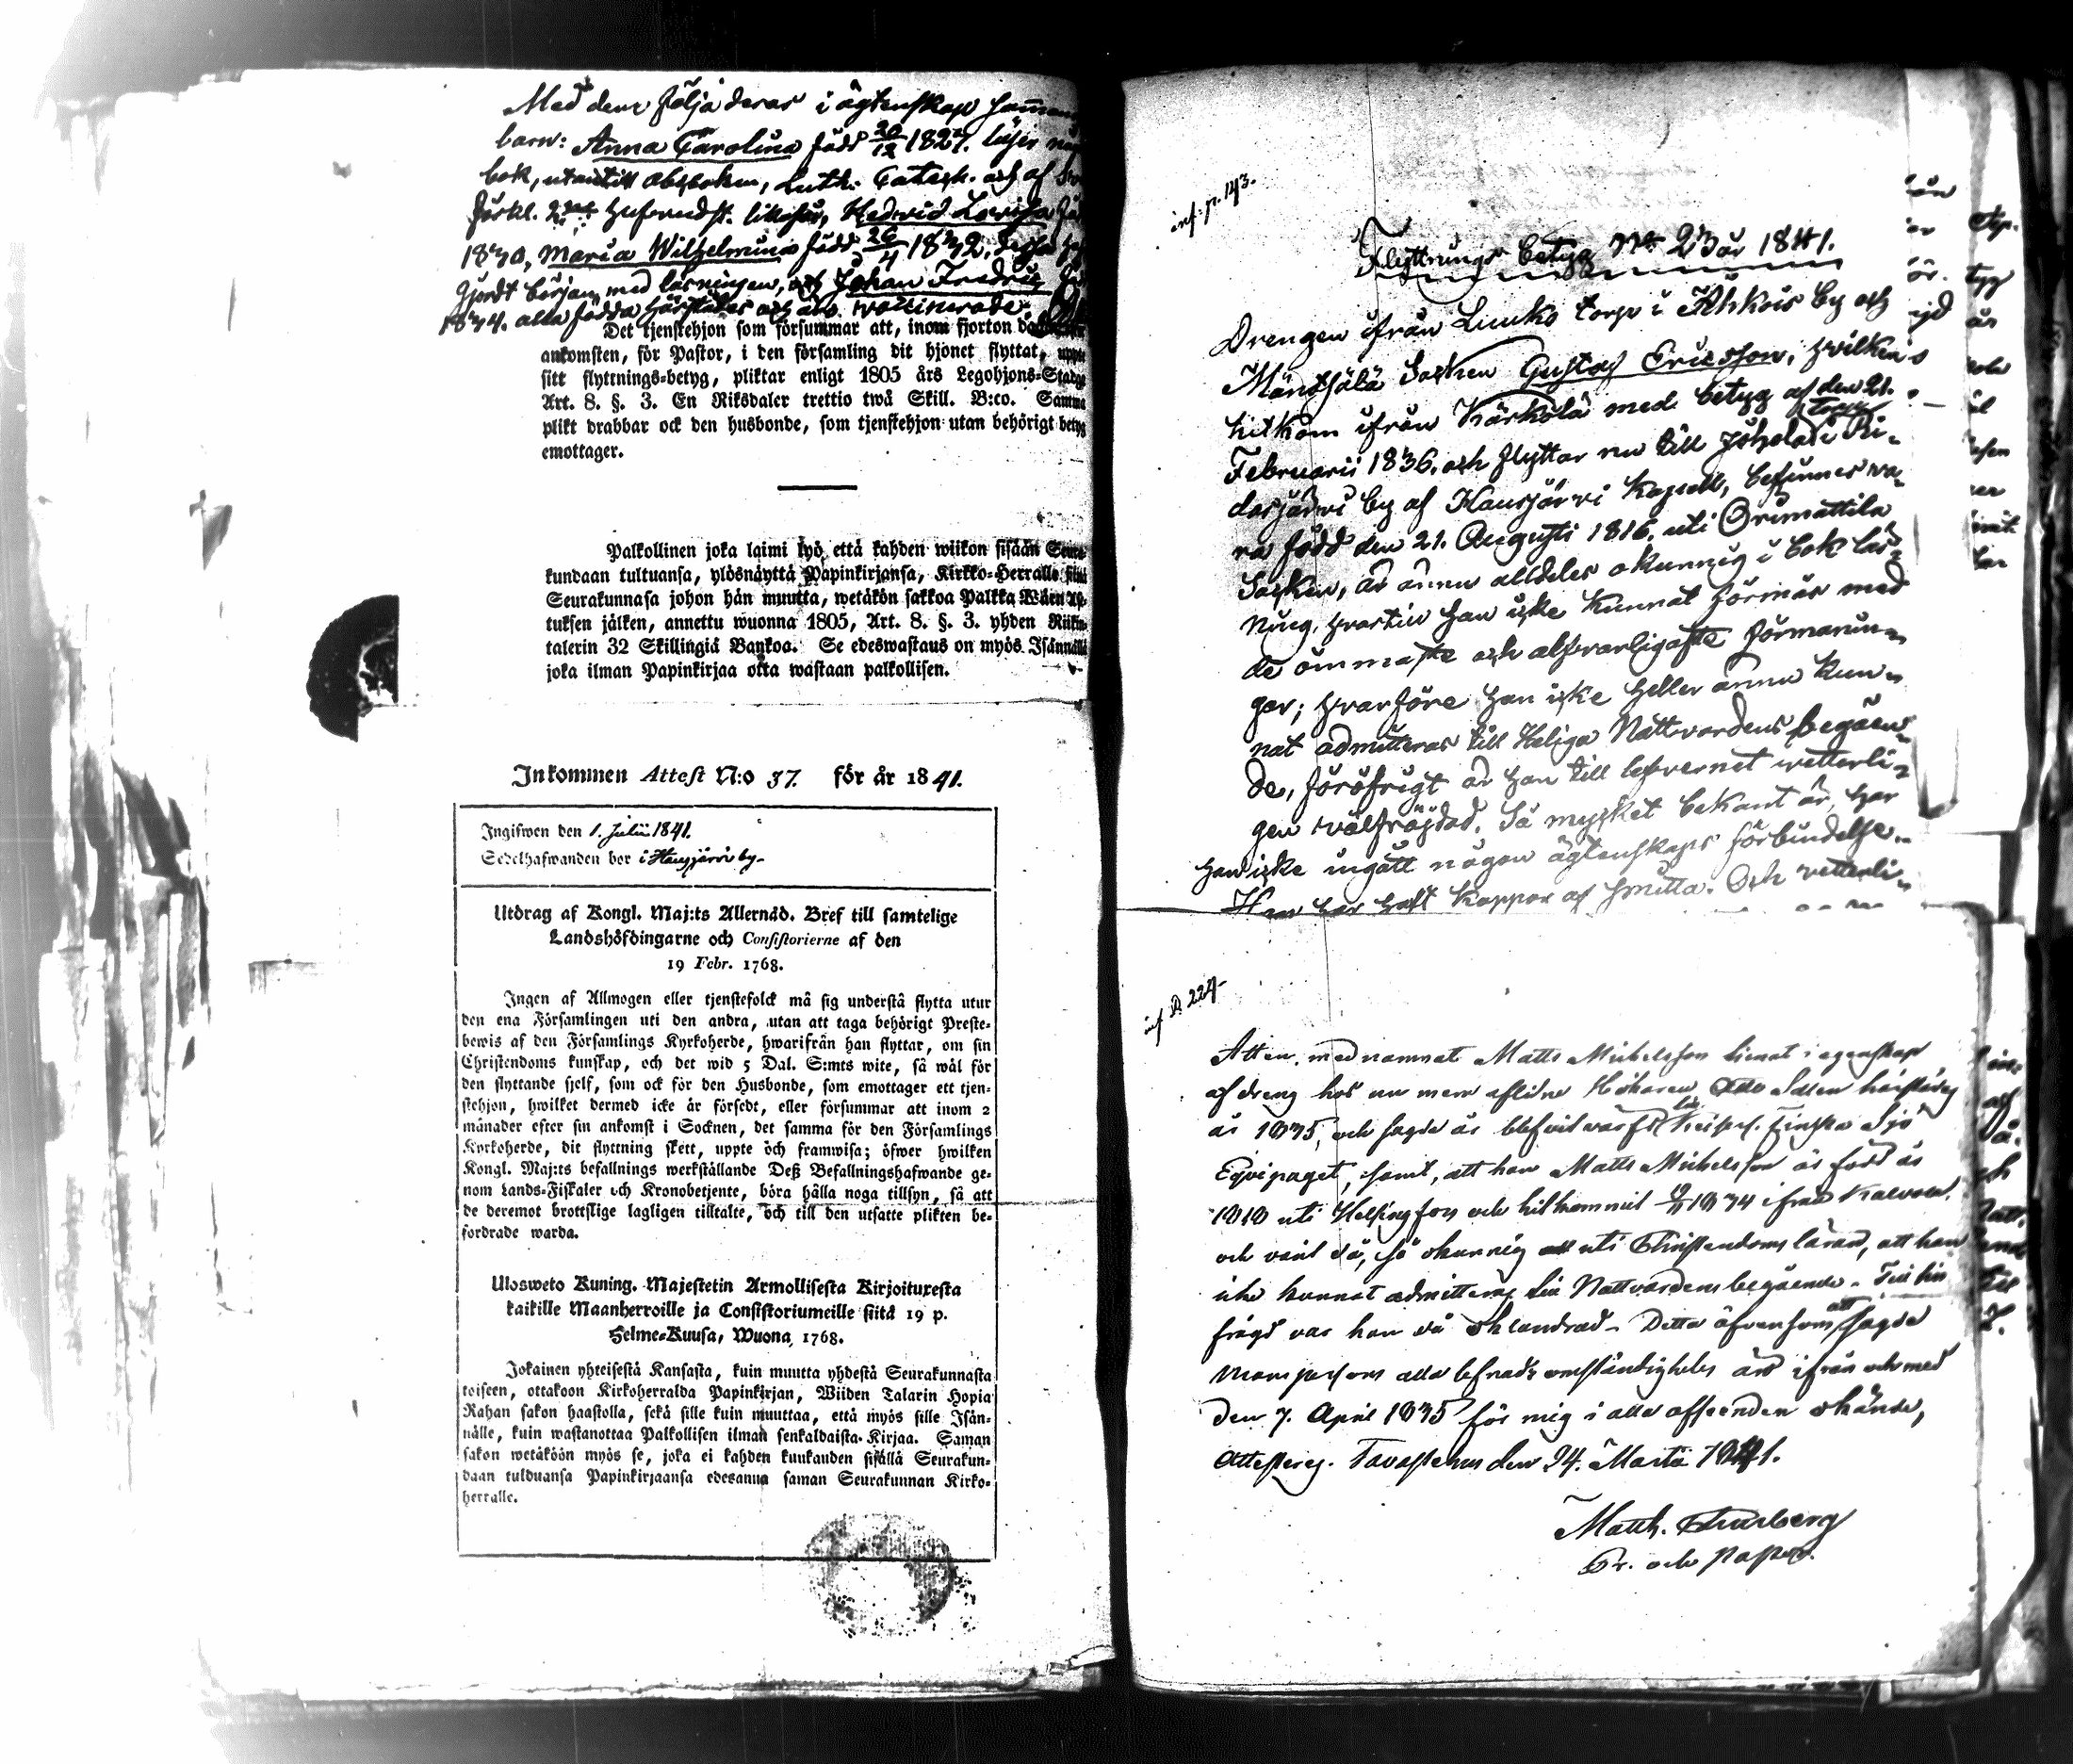 Med dem följa deras i ägtenskap samman
barn: Anna Carolina född 20/12 1827. läser
bok, utantill abcboken, Luth. Catech. och af
förkl. 2 likaså, Hedvid Lovisa
1830, Maria Wilhelmina född 26/4 1832,
gjordt början med läsningen, och Johan Fredric
1834. alla födda härstädes och äro vaccinerade.
Det tjenstehjon som försummar att, inom fjorton
ankomsten, för Pastor, i den församling dit hjonet flyttat,
sitt flyttnings-betyg, pliktar enligt 1805 års Legohjons-Stadg
Art. 8. §. 3. En Riksdaler trettio twå Skill. B:co. Samma
plikt drabbar ock den husbonde, som tjenstehjon utan behörigt betyg
emottager.
Palkollinen joka laimi lyö, että kahden wiikon sisään Seura
kundaan tultuansa, ylösnäyttä Papinkirjansa, Kirkko-Herralle siinä
Seurakunnasa johon hän muutta, wetäkön sakkoa Palkka Wäen
tuksen jälken, annettu wuonna 1805, Art. 8. §. 3. yhden Riikin
talerin 32 Skillingiä Bankoa. Se edeswastaus on myös Isännällä
joka ilman Papinkirjaa otta wastaan palkollisen.
Inkommen Attest N:o 37. för år 1841.
Ingifwen den 1. Julii 1841.
Sedelhafwanden bor i Hausjärvi by-
Utdrag af Kongl. Maj:ts Allernåd. Bref till samtelige
Landshöfdingarne och Consistorierne af den
19 Febr. 1768.
Ingen af Allmogen eller tjenstefolck må sig understå flytta utur
den ena Församlingen uti den andra, utan att taga behörigt Preste-
bewis af den Församlings Kyrkoherde, hwarifrån han flyttar, om sin
Christendoms kunskap, och det wid 5 Dal. S:mts wite, så wäl för
den flyttande sjelf, som ock för den Husbonde, som emottager ett tjen-
stehjon, hwilket dermed icke är försedt, eller försummar att inom 2
månader efter sin ankomst i Socknen, det samma för den Församlings
Kyrkoherde, dit flyttning skett, uppte och framwisa; öfwer hwilken
Kongl. Maj:ts befallnings werkställande Deß Befallningshafwande ge-
nom Lands-Fiskaler och Kronobetjente, böra hålla noga tillsyn, så att
de deremot brottslige lagligen tilltalte, och till den utsatte plikten be-
fordrade warda.
Ulosweto Kuning. Majestetin Armollisesta Kirjoituxesta
kaikille Maanherroille ja Consistoriumeille siitä 19 p.
Helme-Kuusa, Wuona 1768.
Jokainen yhteisestä Kansasta, kuin muutta yhdestä Seurakunnasta
toiseen, ottakoon Kirkoherralda Papinkirjan, Wiiden Talarin Hopia
Rahan sakon haastolla, sekä sille kuin muuttaa, että myös sille Isän-
nälle, kuin wastanottaa Palkollisen ilman senkaldaista Kirjaa. Saman
sakon wetäköön myös se, joka ei kahden kuukauden sisällä Seurakun-
daan tulduansa Papinkirjaansa edesanna saman Seurakunnan Kirko-
herralle.
inf. p. 143.
Flyttnings betyg No 23 år 1841.
Drengen ifrån Luuko torp i Ahkois by och
Mäntsälä Socken Gustaf Ericsson, hvilken
hitkom ifrån Kärkölä med betyg af den 21.
Februarii 1836. och flyttar nu till Torp i Ri-
dasjärvi by af Hausjärvi Kapell, befinnes va-
ra född den 21. Augusti 1816. uti Orimattila
Socken, är ännu alldeles okunnig i bok läs-
ning, hvartill han icke kunnat förmås med
de ömmaste och alfvarligaste förmanin-
gar; hvarföre han icke heller ännu kun-
nat admitteras till Heliga Nattvardens begåen-
de, föröfrigt är han till lefvernet vetterli-
gen välfräjdad. Så mycket bekant är, har
han icke ingått någon ägtenskaps förbindelse.
Han har haft koppor af smitta. Och vetterli-
inf. p. 227-
Atten. mednamnat Matts Michelsson tienat i egenskap
af dreng hos nu mera aflidne Hökaren härstädes
år 1835, och sagde år blefvit värfd till Kejserl. Finska Sjö
Eqvipaget, samt, att han Matts Michelsson är född år
1818 uti Helsingfors och hitkommit 1834 ifrån Kalvola.
och varit då, så okunnig uti Christendoms läran, att han
icke kunnat admitteras till Nattvardens begående. Till sin
frägd var han då oklandrad. Detta äfvensom att sagde
Mans persons alla lefnads omständigheter äro ifrån och med
den 7. April 1835 för mig i alla afseenden okände,
Attesteras. Tavastehus den 24. Martii 1841.
Matth.
Pr. och Pastor.